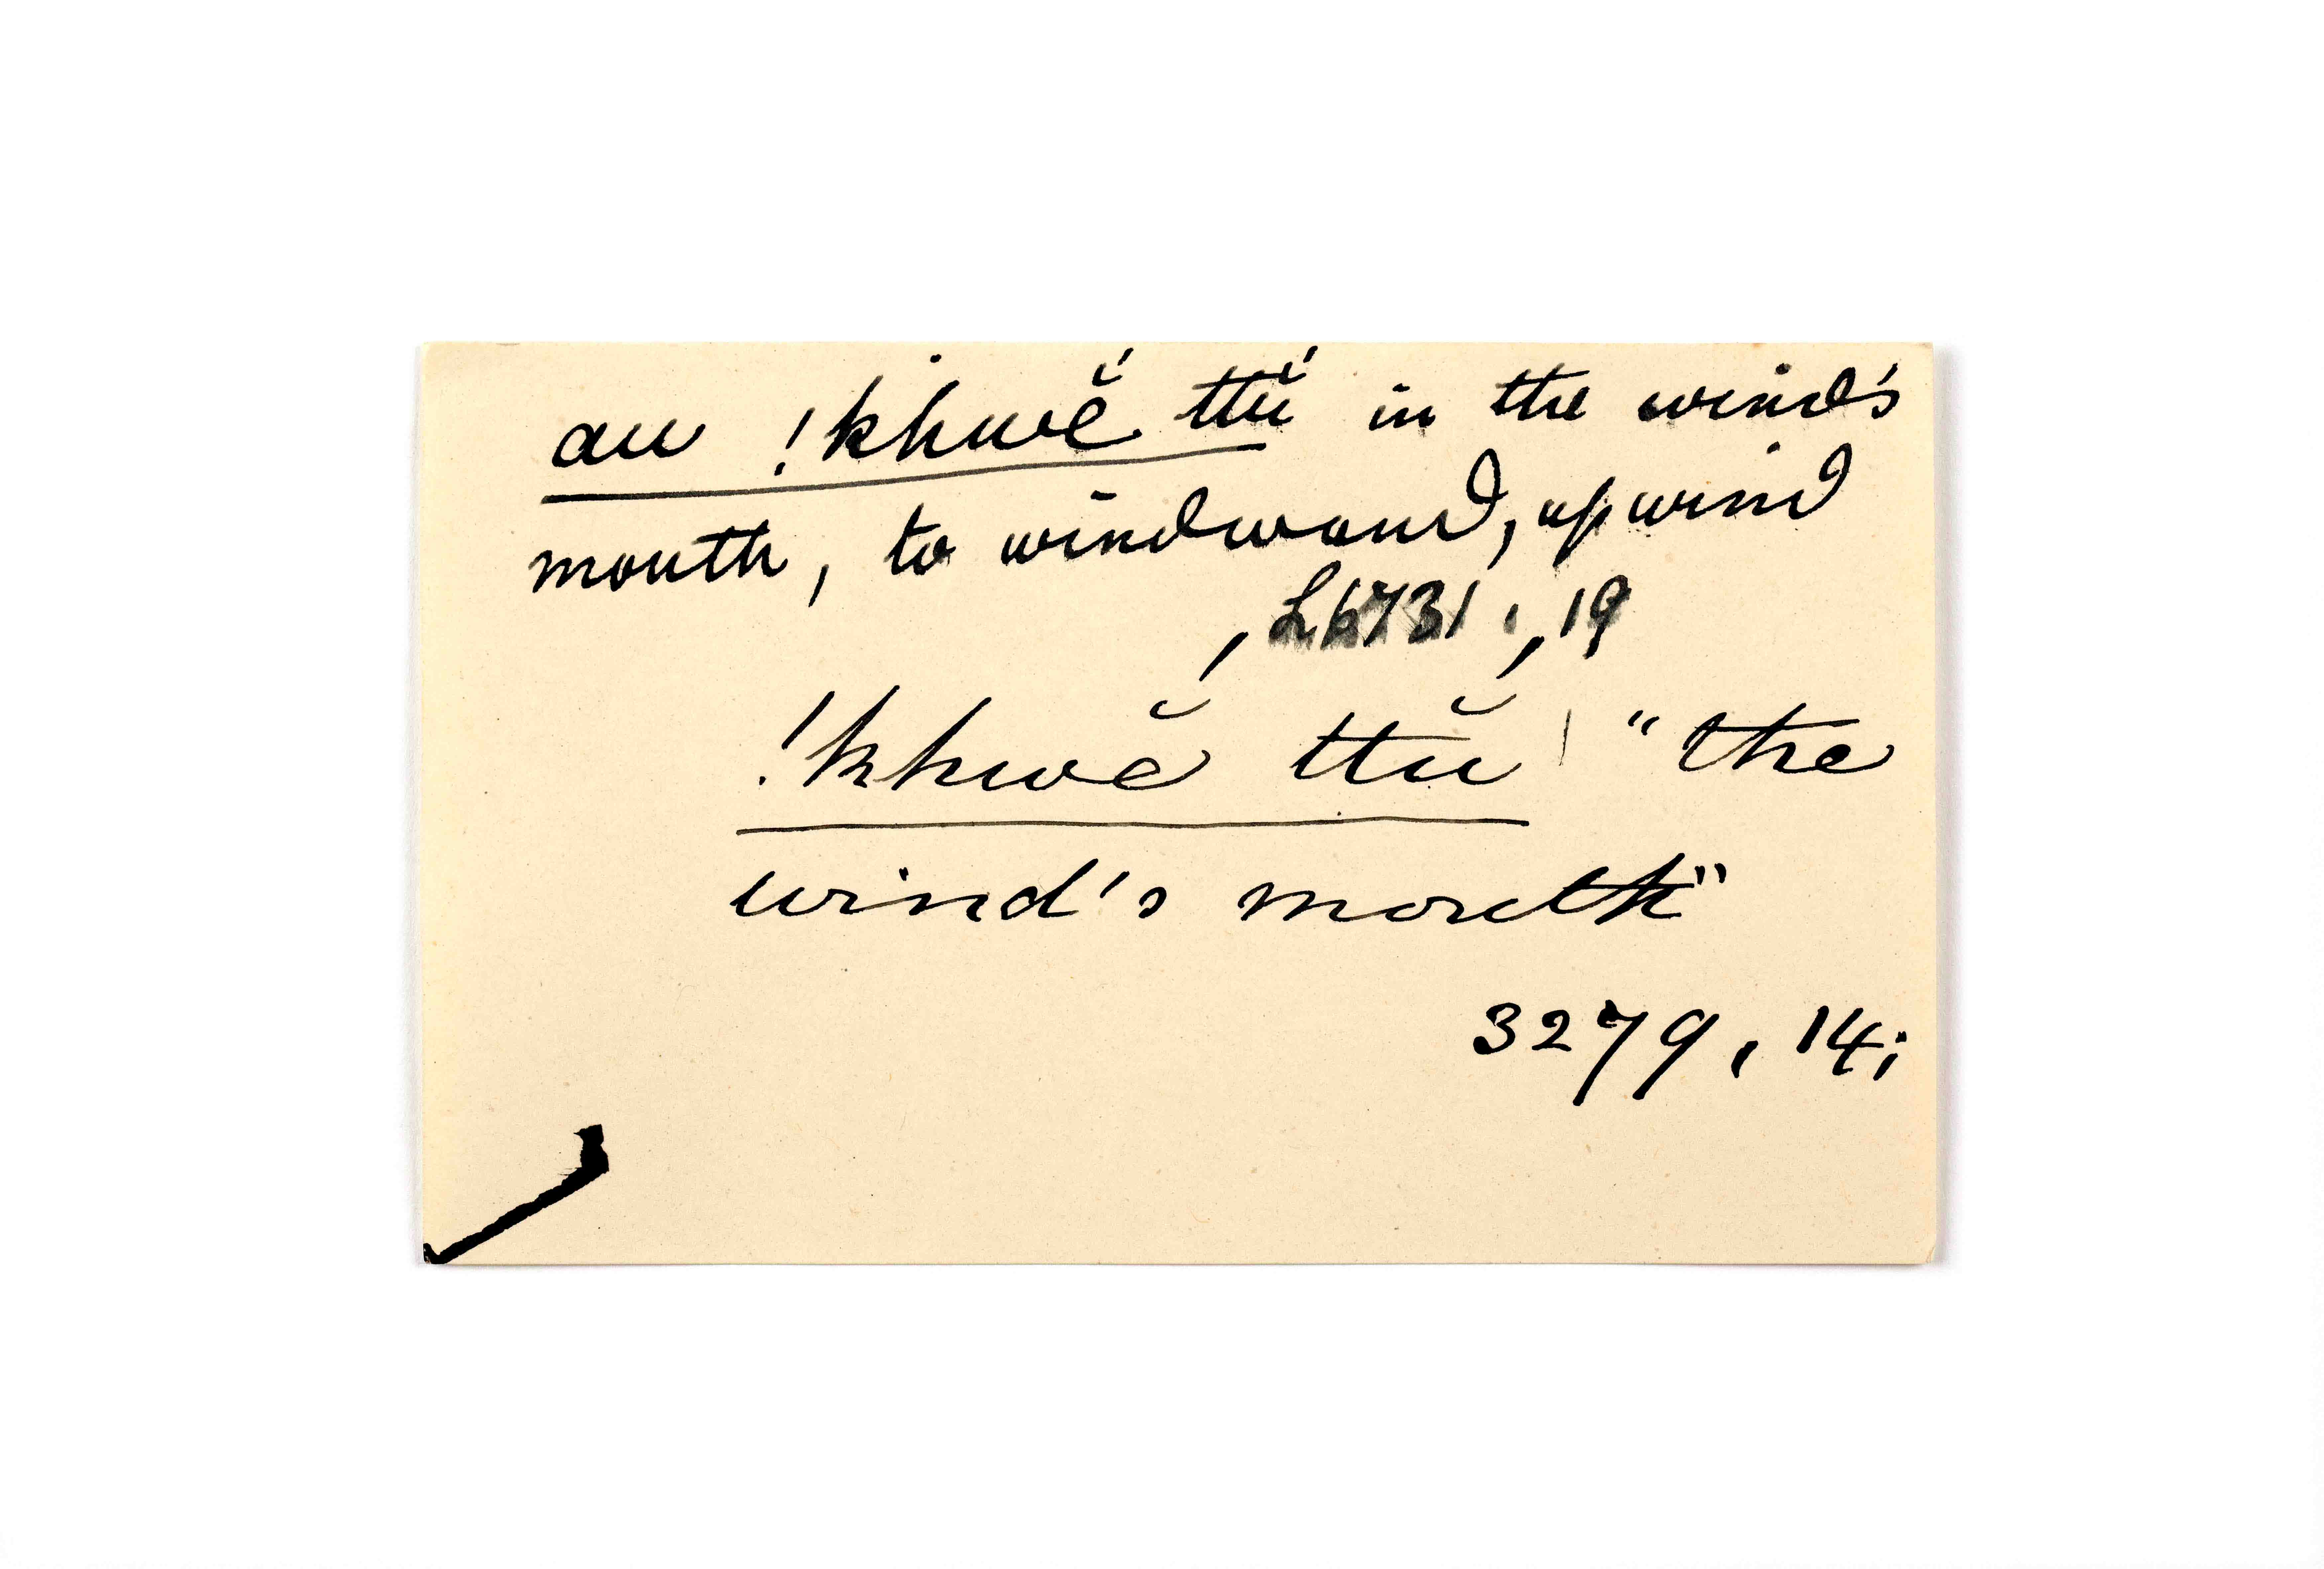 au !khwĕ́ ttŭ́ in the wind's
mouth, to windward, up wind
, L6731, 19
!khwĕ́ ttŭ́ "the
wind's mouth"
3279, 14;